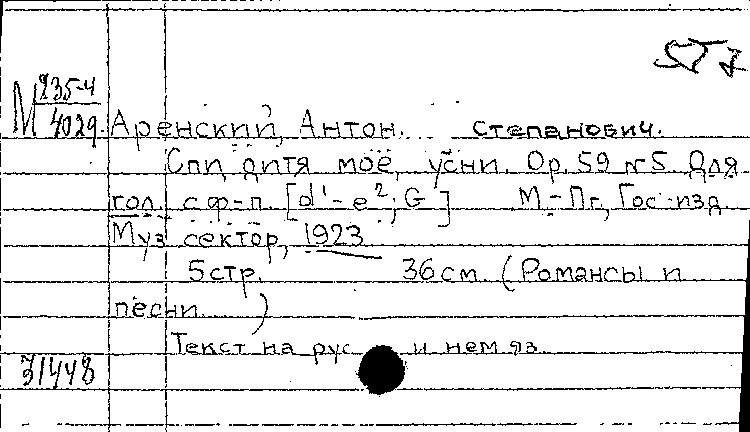 М 235-4
4029
Аренский, Антон Степанович.
Спи дитя моё, усни. Op. 59 №5. Для
гол. с ф-п. [d'-e²; G] М.-Пг, Гос. изд.
Муз сектор, 1923
5 стр. 36 см (Романсы и
песни )
Текст на рус и нем яз
31448